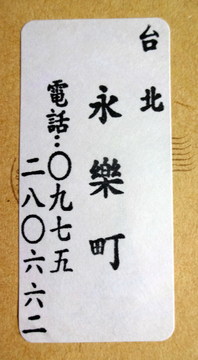 台北
永樂町
電話：〇九七五
二八〇六六二